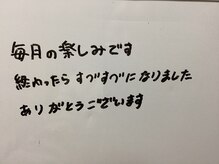 毎月の楽しみです
終わったらすづすづになりました
ありがとうございます